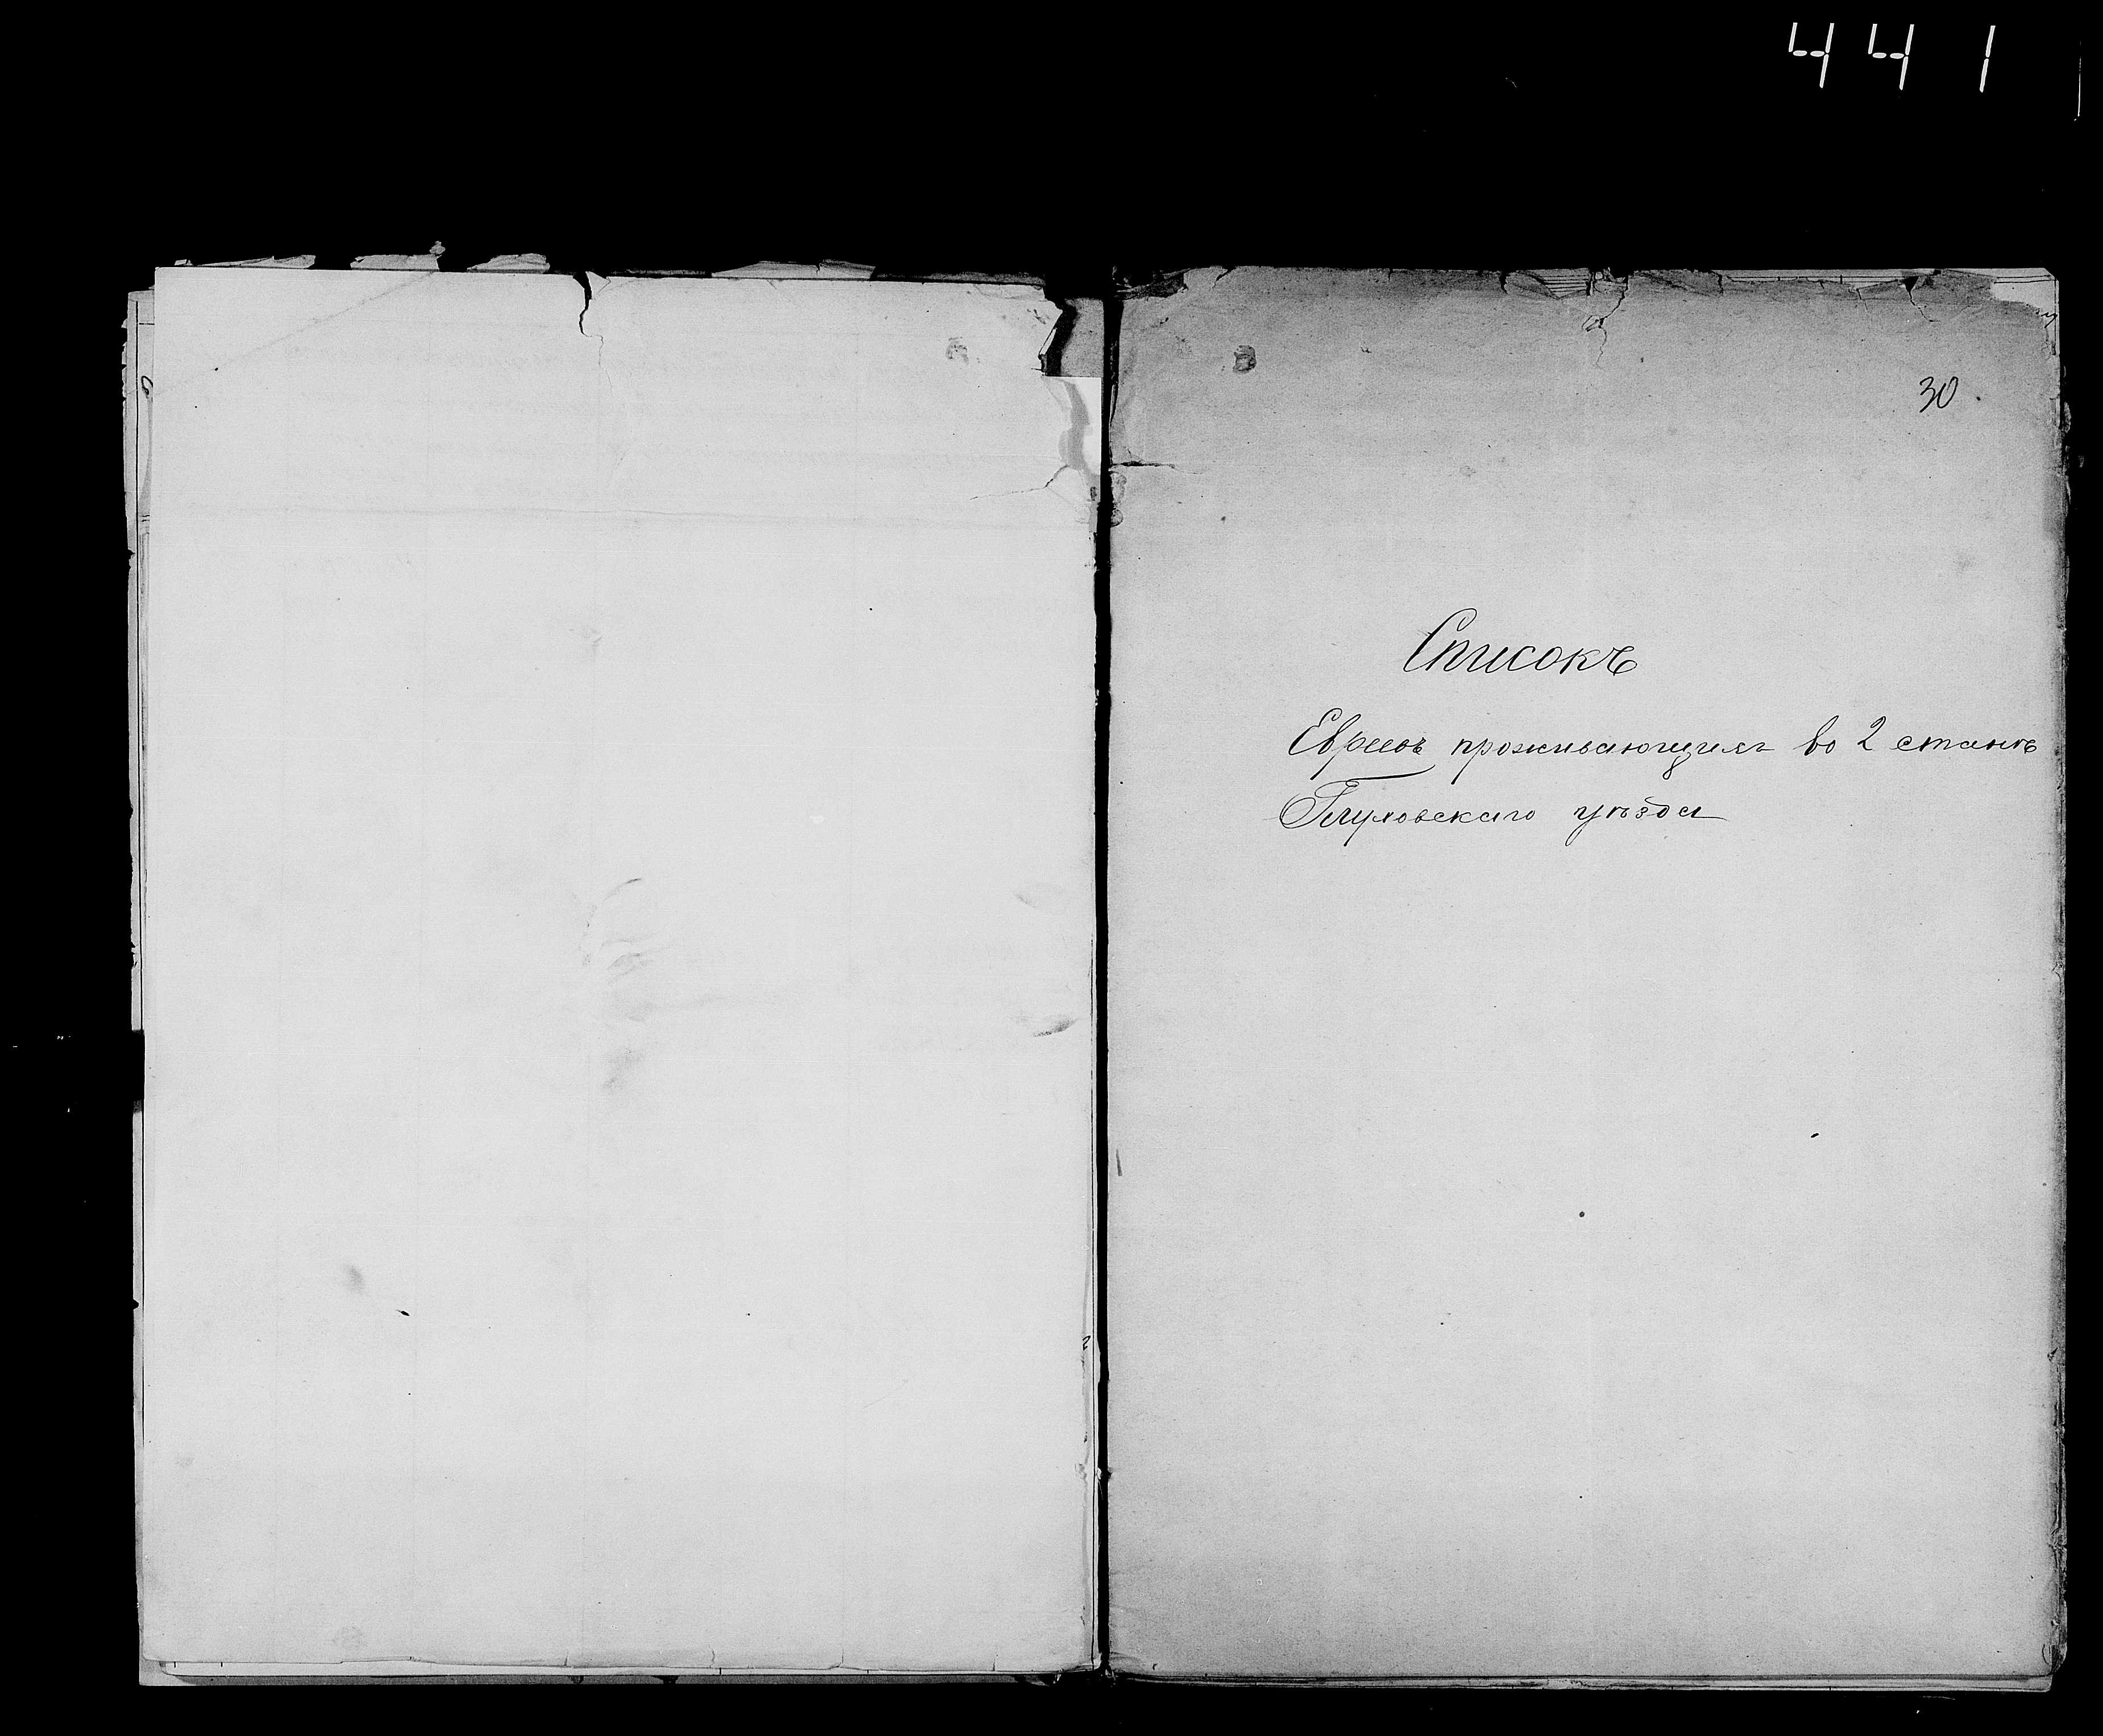 441
30
Списокъ
Евреевъ проживающихъ во 2 станѣ
Глуховскаго уѣзда